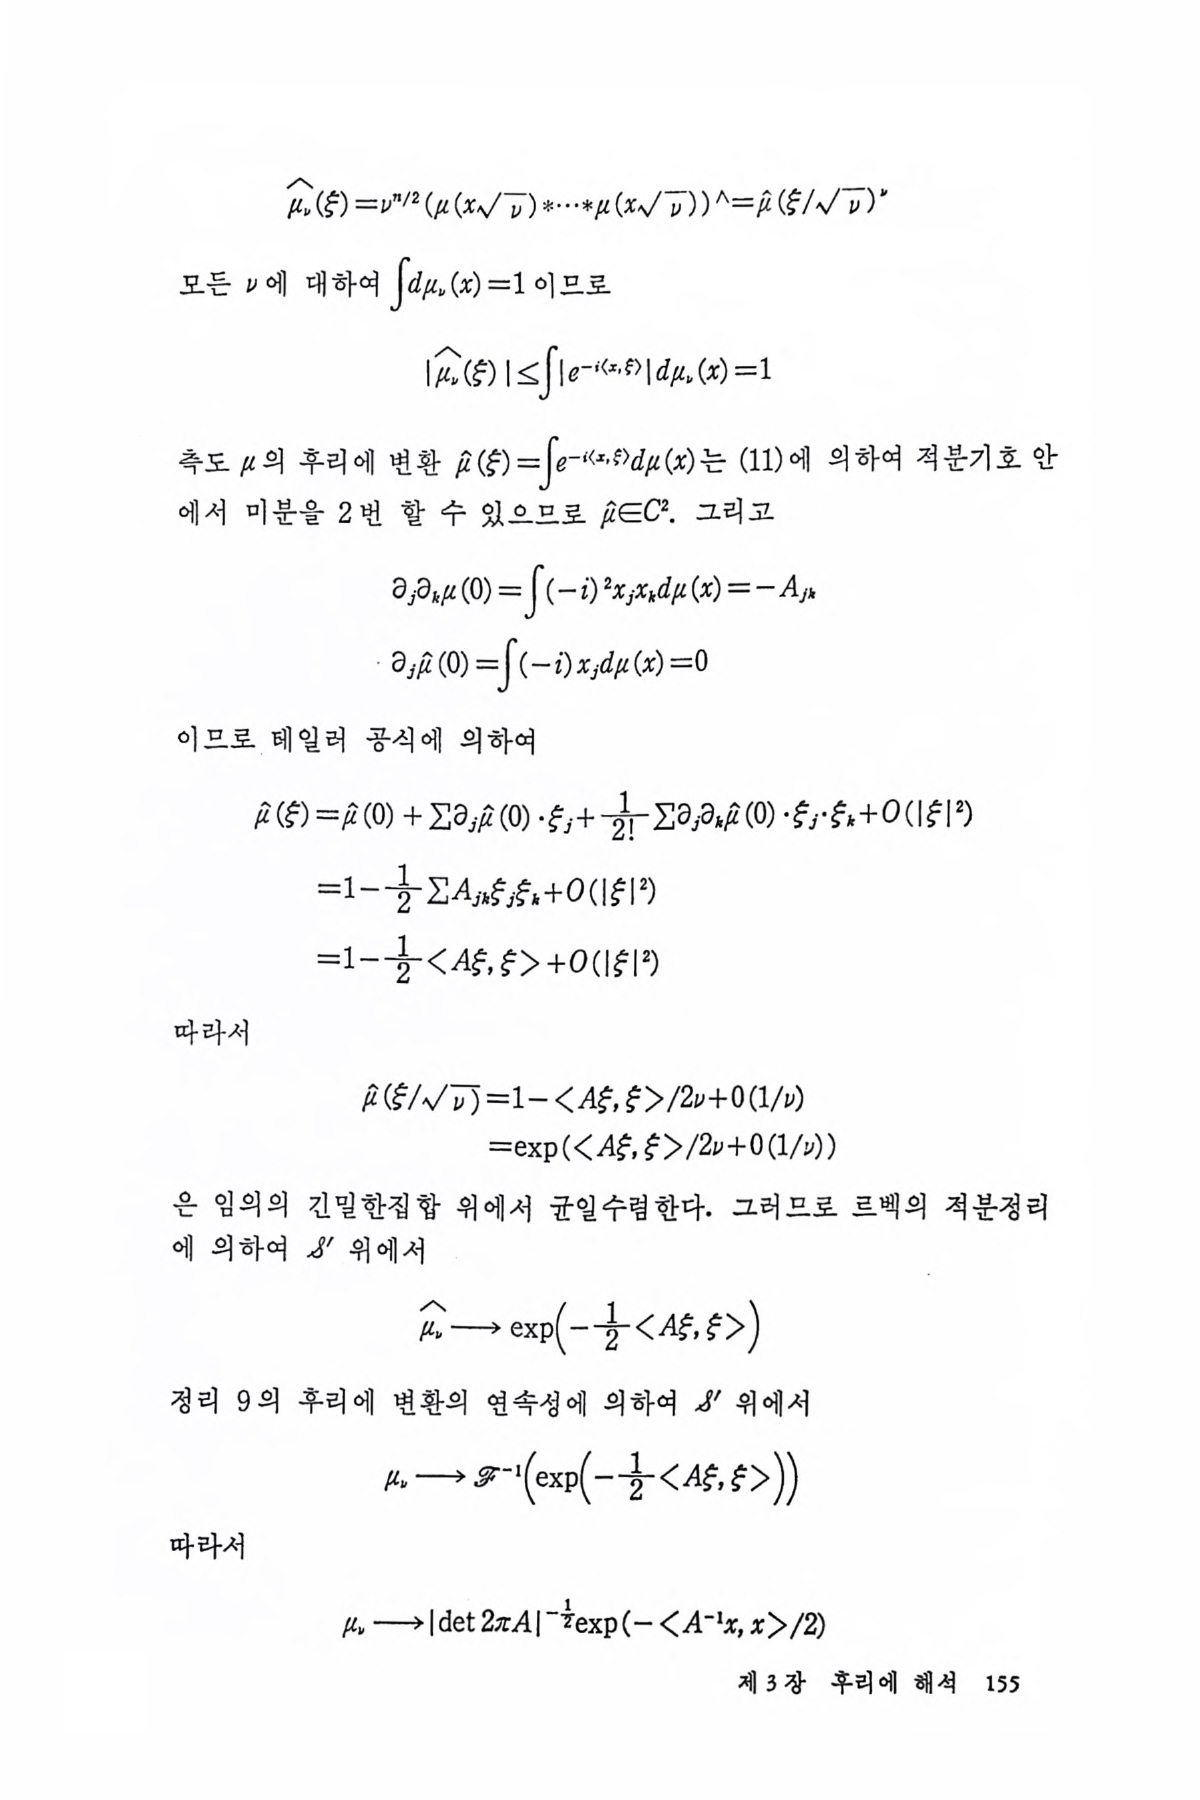 μ̂_ν(ξ)=ν^{n/2}(μ(x√ν)*⋯*μ(x√ν))^∧=μ̂(ξ/√ν)^ν
모든 ν에 대하여 ∫dμ_ν(x)=1이므로
|μ̂_ν(ξ)|≤∫|e^{-i<x,ξ>}|dμ_ν(x)=1
측도 μ의 후리에 변환 μ̂(ξ)=∫e^{-i<x,ξ>}dμ(x)는 (11)에 의하여 적분기호 안
에서 미분을 2번 할 수 있으므로 μ̂∈C². 그리고
∂_j∂_kμ(0)=∫(-i)²x_jx_kdμ(x)=-A_{jk}
∂_jμ̂(0)=∫(-i)x_jdμ(x)=0
이므로 테일러 공식에 의하여
μ̂(ξ)=μ̂(0)+∑∂_jμ̂(0)·ξ_j+\frac{1}{2!}∑∂_j∂_kμ̂(0)·ξ_j·ξ_k+O(|ξ|²)
=1-\frac{1}{2}∑A_{jk}ξ_jξ_k+O(|ξ|²)
=1-\frac{1}{2}<Aξ,ξ>+O(|ξ|²)
따라서
μ̂(ξ/√ν)=1-<Aξ,ξ>/2ν+0(1/ν)
=exp(<Aξ,ξ>/2ν+0(1/ν))
은 임의의 긴밀한집합 위에서 균일수렴한다. 그러므로 르벡의 적분정리
에 의하여 𝒮′ 위에서
μ̂_ν⟶exp(-\frac{1}{2}<Aξ,ξ>)
정리 9의 후리에 변환의 연속성에 의하여 𝒮′ 위에서
μ_ν⟶ℱ^{-1}(exp(-\frac{1}{2}<Aξ,ξ>))
따라서
μ_ν⟶|det 2πA|^{-\frac{1}{2}}exp(-<A^{-1}x,x>/2)
제 3 장 후리에 해석 155